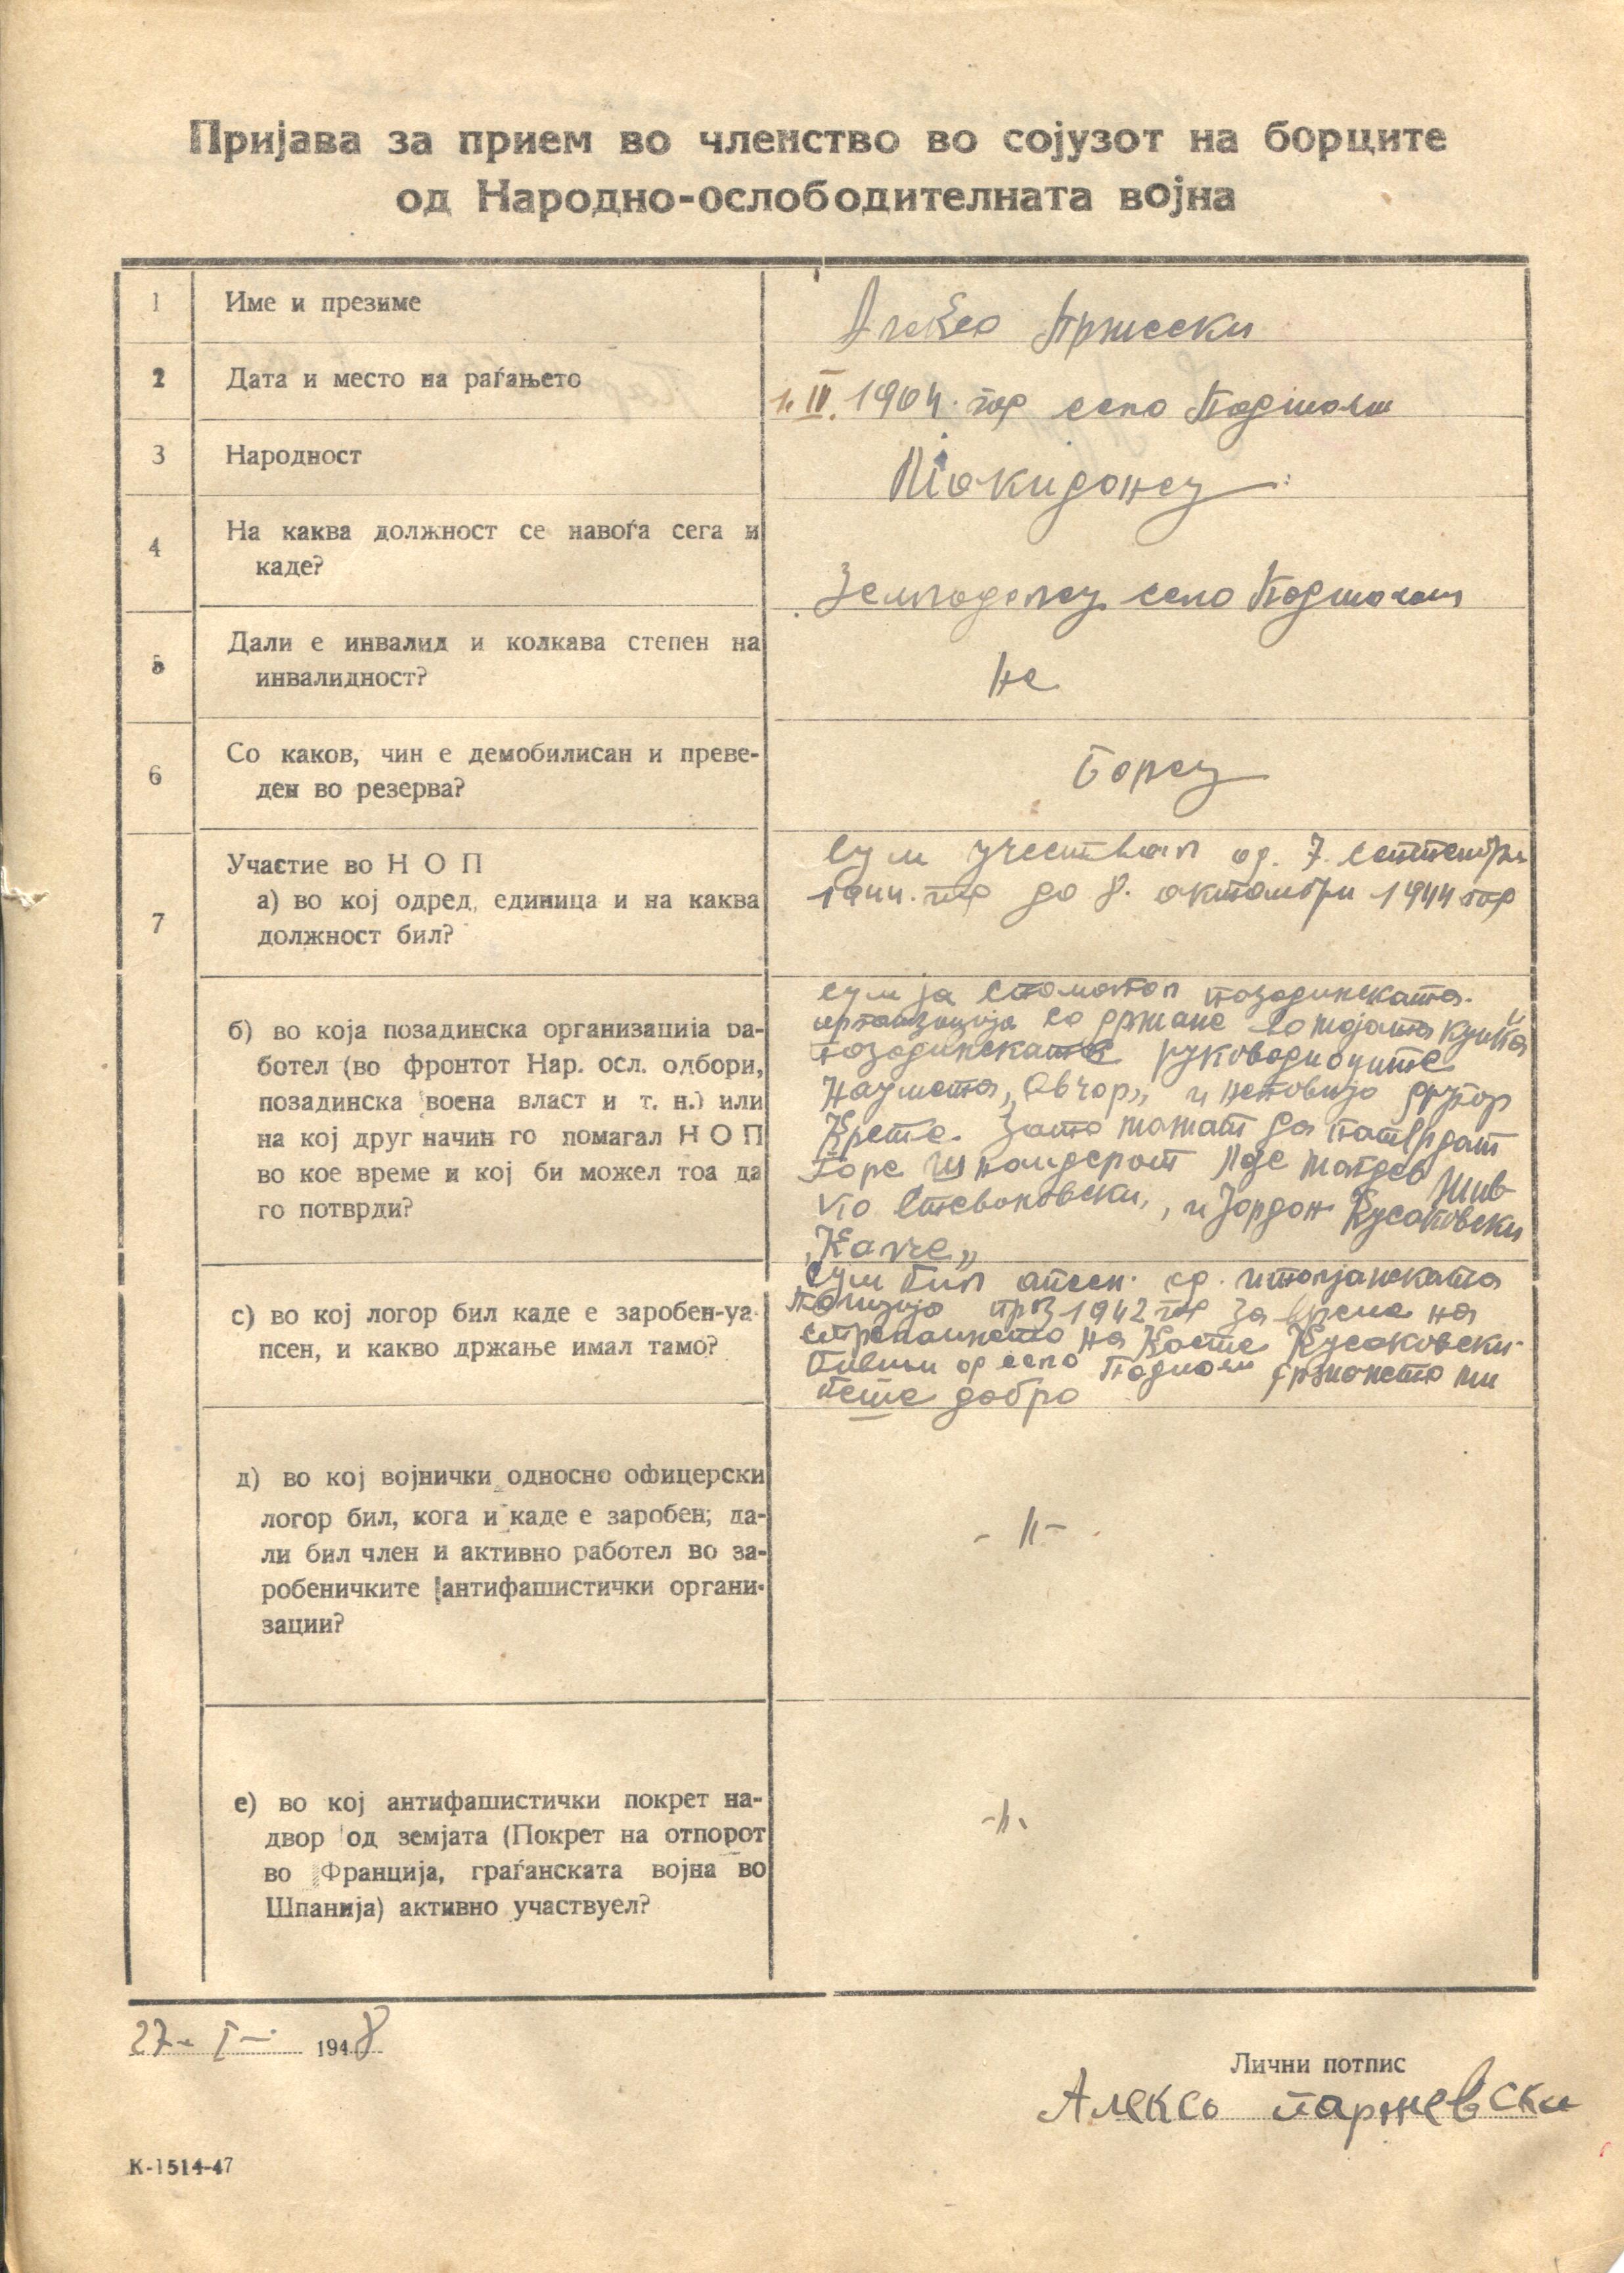 Пријава за прием во членство во сојузот на борците
од Народно-ослободителната војна
1 Име и презиме
Алексо
2 Дата и место на раѓањето
1. IV. 1904. год село
3 Народност
Макидонец
4 На каква должност се навоѓа сега и
каде?
Земјоделец село
5 Дали е инвалид и колкава степен на
инвалидност?
Не
6 Со каков, чин е демобилисан и преве-
ден во резерва?
Борец
7 Участие во Н О П
а) во кој одред, единица и на каква
должност бил?
Сум учествал од. 7. септември
1944. год до 8. октомври 1944 год
б) во која позадинска организација ра-
ботел (во фронтот Нар. осл. одбори,
позадинска воена власт и т. н.) или
на кој друг начин го помагал Н О П
во кое време и кој би можел тоа да
го потврди?
сум ја помогал позадинската
организација со држање во мојата куќа
позадинските руководиоците
Наумета „Овчар„ и неговијо другар
Крсте. Зато можат да потврдат
Горе
и Јордан
„Калче„
с) во кој логор бил каде е заробен-уа-
псен, и какво држање имал тамо?
Сум бил апсен од. италјанската
полиција през 1942 год за време на
на Косте Кусаковски
од село држането ми
беше добро
д) во кој војнички односно офицерски
логор бил, кога и каде е заробен; да-
ли бил член и активно работел во за-
робеничките антифашистички органи-
зации?
-11-
е) во кој антифашистички покрет на-
двор од земјата (Покрет на отпорот
во Франција, граѓанската војна во
Шпанија) активно участвуел?
-11-
27- I - 1948
Лични потпис
Алексо Паржевски
К-1514-47